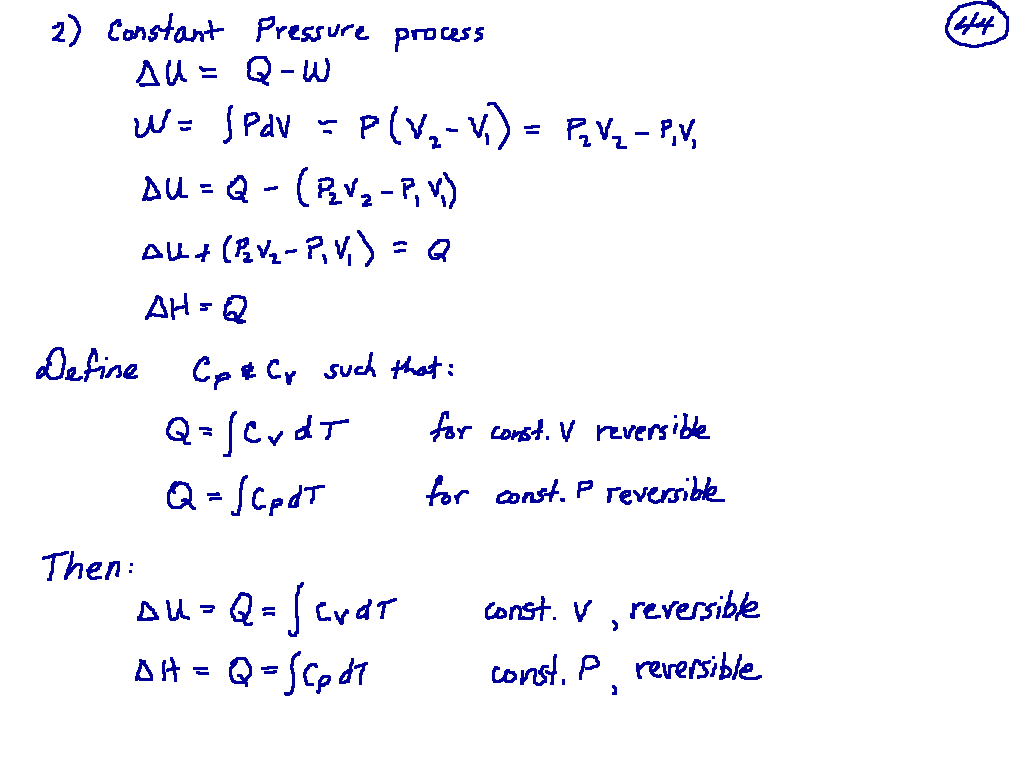 2) Constant Pressure process 44
ΔU = Q - W
W = ∫PdV = P(V₂ - V₁) = P₂V₂ - P₁V₁
ΔU = Q - (P₂V₂ - P₁V₁)
ΔU + (P₂V₂ - P₁V₁) = Q
ΔH = Q
Define Cp & Cv such that:
Q = ∫Cv dT for const. V reversible
Q = ∫Cp dT for const. P reversible
Then:
ΔU = Q = ∫Cv dT const. V, reversible
ΔH = Q = ∫Cp dT const. P, reversible